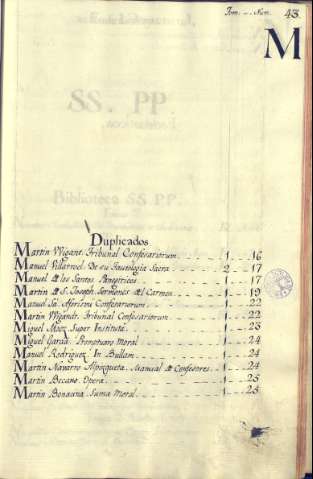 Tom. — Num. 43.
M
SS. PP.
Biblioteca SS PP.
Duplicados
Martin Wigant. Tribunal Confesariorum. 1 16
Manuel Villarroel. De su Tautologia Sacra. 2 17
Manuel de los Santos. Panegiricos. 1 17
Martin de S. Joseph. Sermones del Carmen 1 19
Manuel Sa. Aforismi Confesariorum. 1 22
Martin Wigandt. Tribunal Confesariorum. 1 22
Miguel Super Instituta. 1 23
Miguel Garcia. Prontuario Moral 1 24
Manuel Rodriguez. In Bullam. 1 24
Martin Navarro Alpizqueta. Manual de Confesores. 1 24
Martin Becano. Opera. 1 25
Martin Bonacina. Suma Moral. 1 25